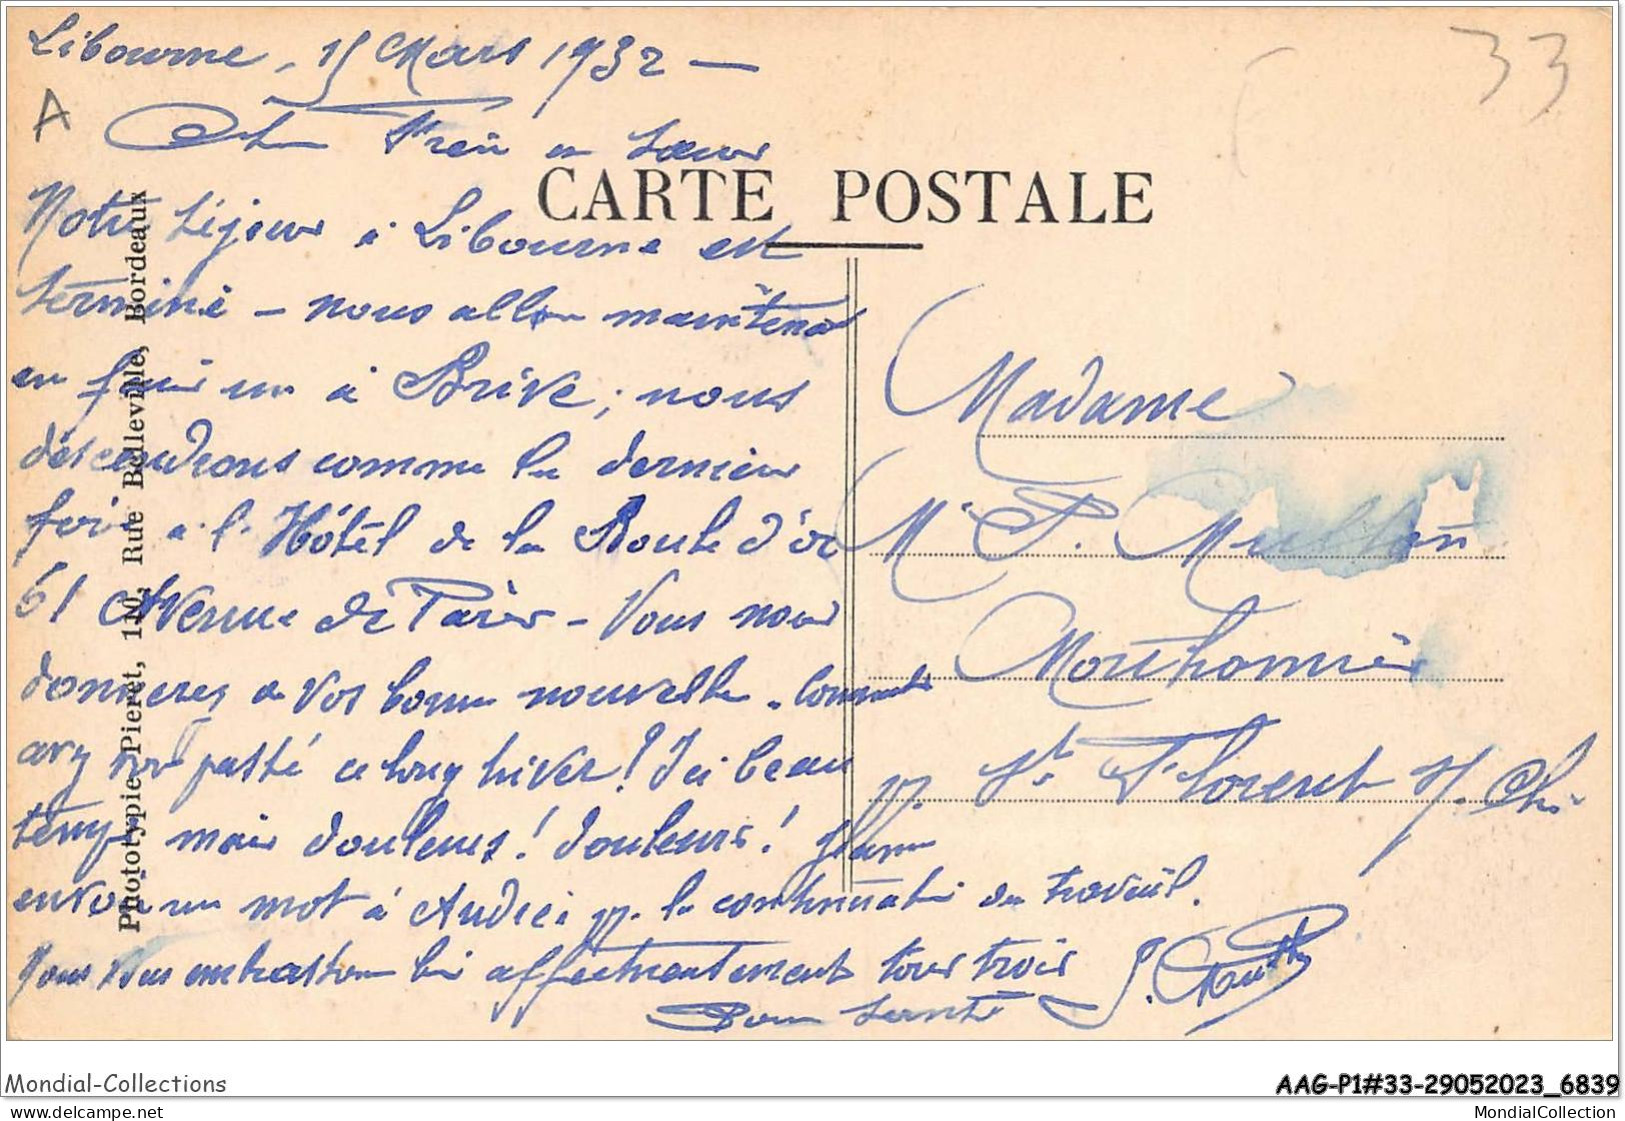 Libourne, 15 Mars 1932 —
33
A
Cher Frère et Sœur
CARTE POSTALE
Notre séjour à Libourne est
terminé — nous allons maintenant
en faire un à Brive ; nous
descendrons comme la dernière
fois à l'Hôtel de la Boule d'or
61 Avenue de Paris — Vous nous
donnerez de vos bonnes nouvelles. Comment
avez vous passé ce long hiver ! Ici beau
temps mais douleurs ! douleurs !
envoie un mot à André pr. la continuation du travail.
Nous vous embrassons bien affectueusement tous trois
Bonne santé
Madame
P.
St Florent s/. Cher
Phototypie Pieret, 110, Rue Belleville, Bordeaux
Mondial-Collections
AAG-P1#33-29052023_6839
www.delcampe.net
MondialCollection